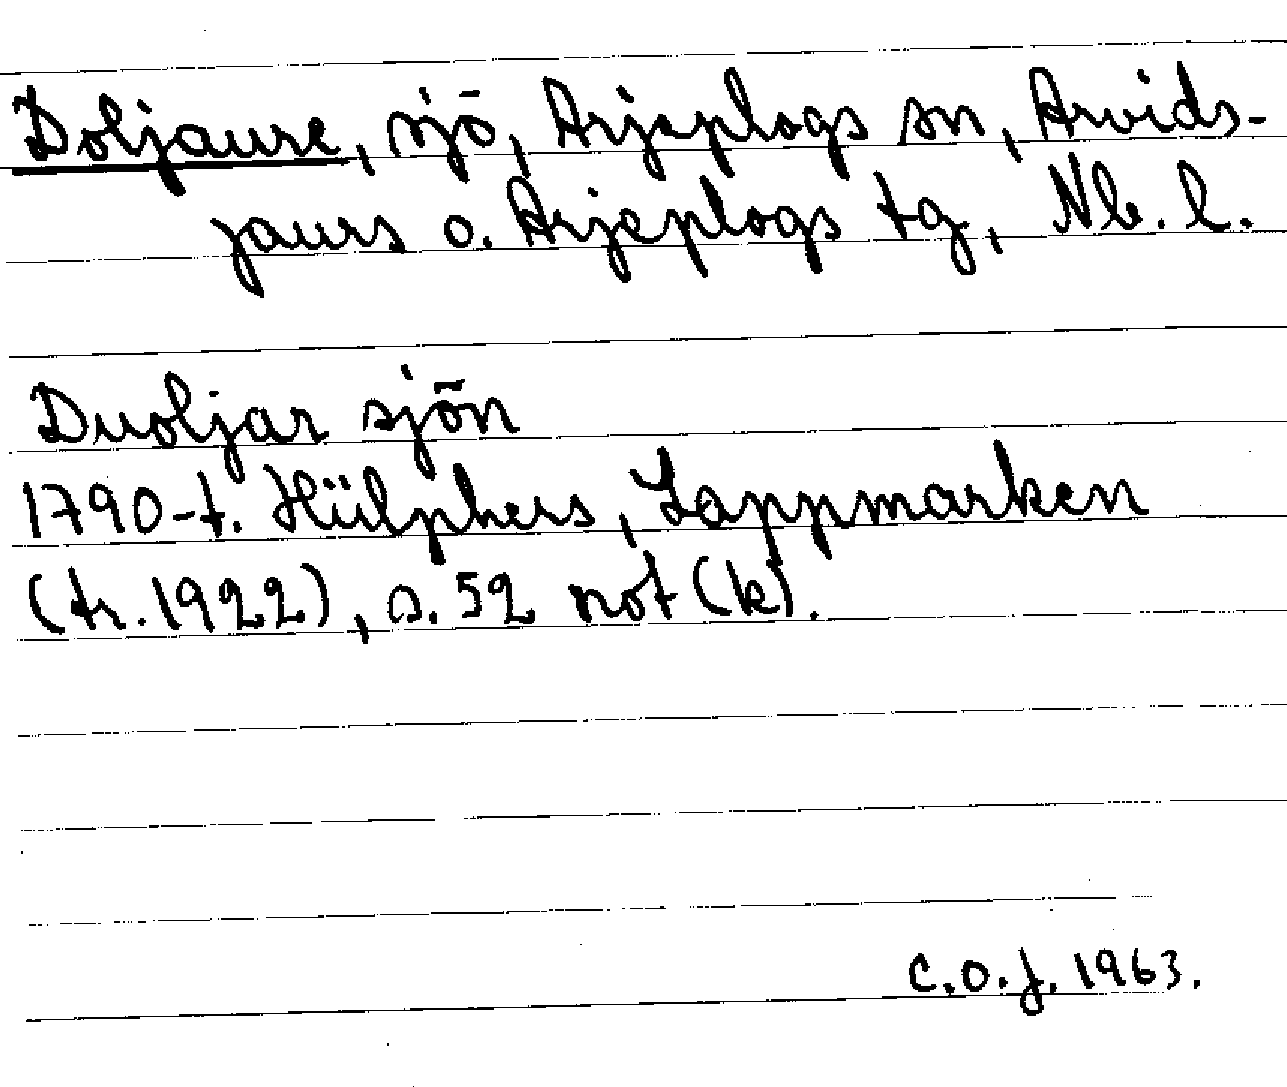 Doljaure, sjö, Arjeplogs sn, Arvids-
jaurs o. Arjeplogs tg, Nb. l.
Duoljar sjön
1790-t. Hülphers, Lappmarken
(tr. 1922), s. 52 not (k).
C.O.J. 1963.